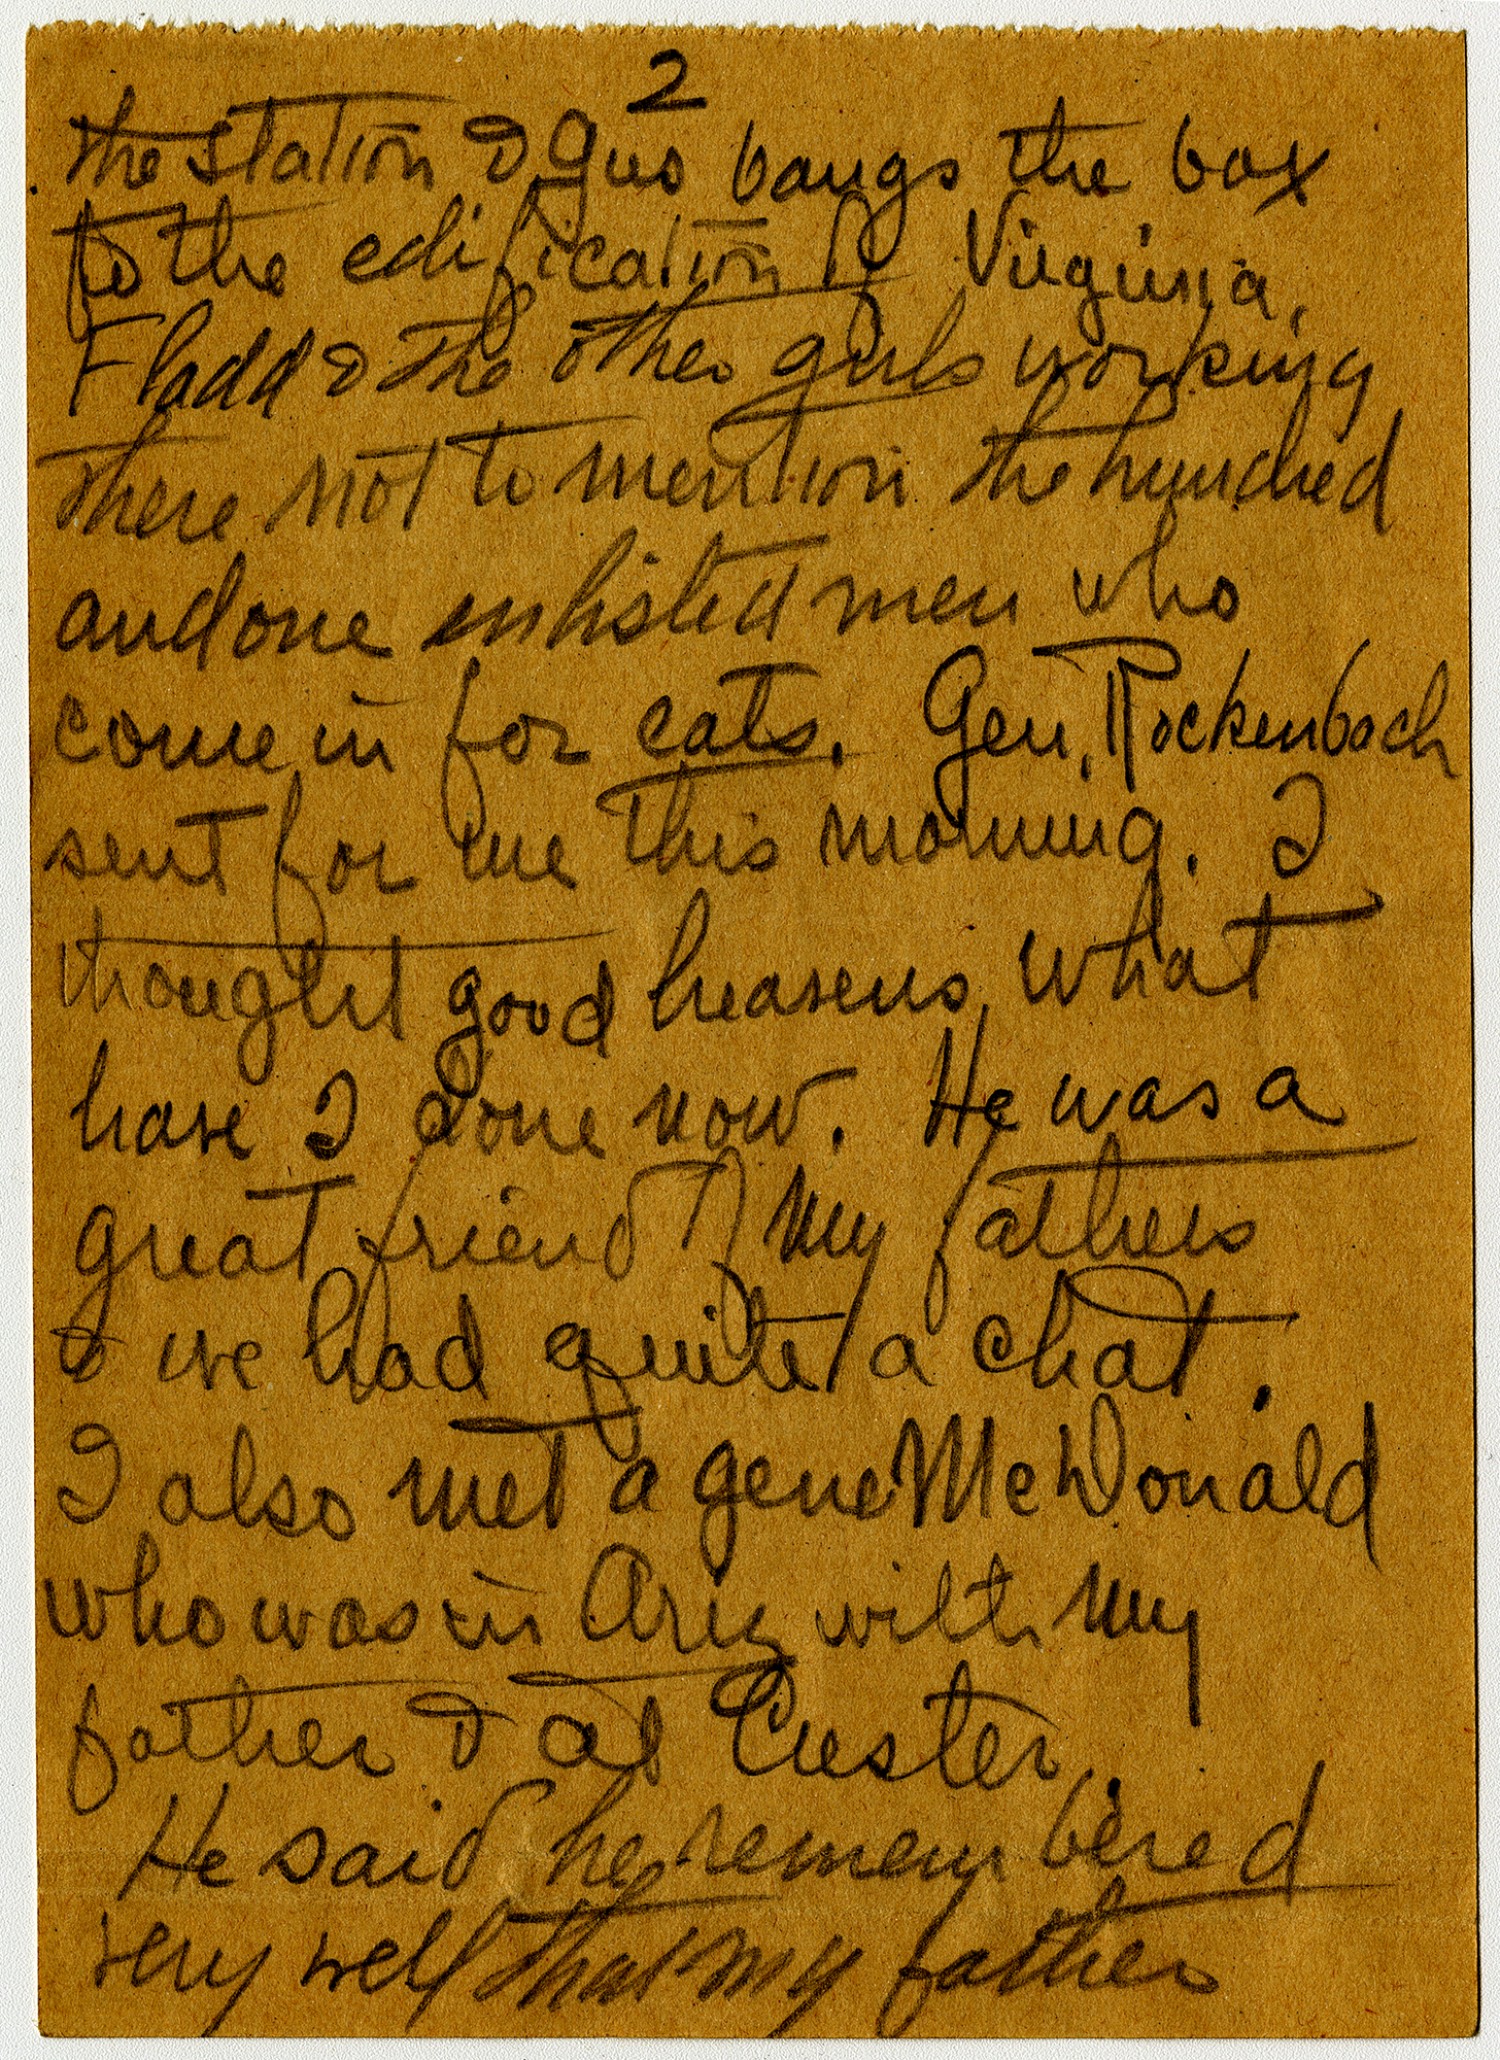 2
the station & Gus bangs the box
fo the edification of Virginia,
Fladd & the other girls working
there not to mention the hundred
and one enlisted men who
come in for eats. Gen. Rockenbach
sent for me this morning. I
thought good heavens, what
have I done now. He was a
great friend of my fathers
& we had quite a chat.
I also met a gene McDonald
who was in Ariz with my
father & at Custer.
He said he remembered
very well that my father